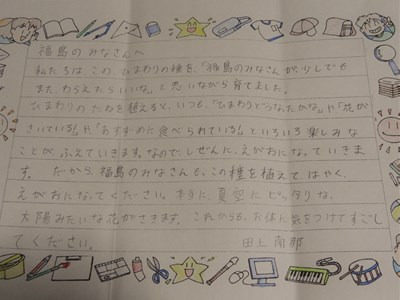 福島のみなさんへ
私たちは、このひまわりの種を、「福島のみなさんが、少しでも
また、わらえたらいいな。」と思いながら育てました。
ひまわりのたねを植えると、いつも、「ひまわりどうなったかな。」や「花が
さいている!」や「すずめに食べられている!」といろいろ楽しみな
ことが、ふえていきます。なので、しぜんに、えがおになっていきま
す。だから、福島のみなさんも、この種を植えてはやく、
えがおになってください。本当に、夏空にピッタリな、
太陽みたいな花がさきます。これからも、お体に気をつけてすごし
てください。
田上